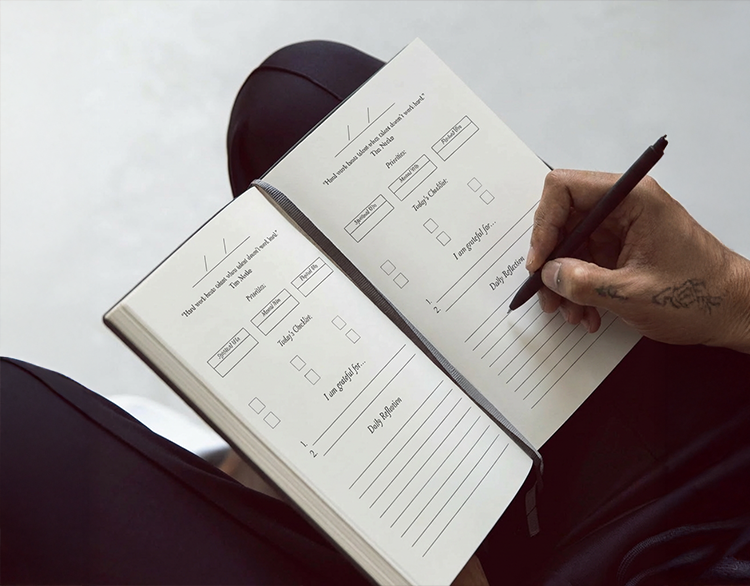 / /
"Hard work beats talent when talent doesn't work hard."
Tim Notke
Priorities:
Spiritual Win Mental Win Physical Win
Today's Checklist:
I am grateful for...
1.
2.
Daily Reflection
/ /
"Hard work beats talent when talent doesn't work hard."
Tim Notke
Priorities:
Spiritual Win Mental Win Physical Win
Today's Checklist:
I am grateful for...
1.
2.
Daily Reflection